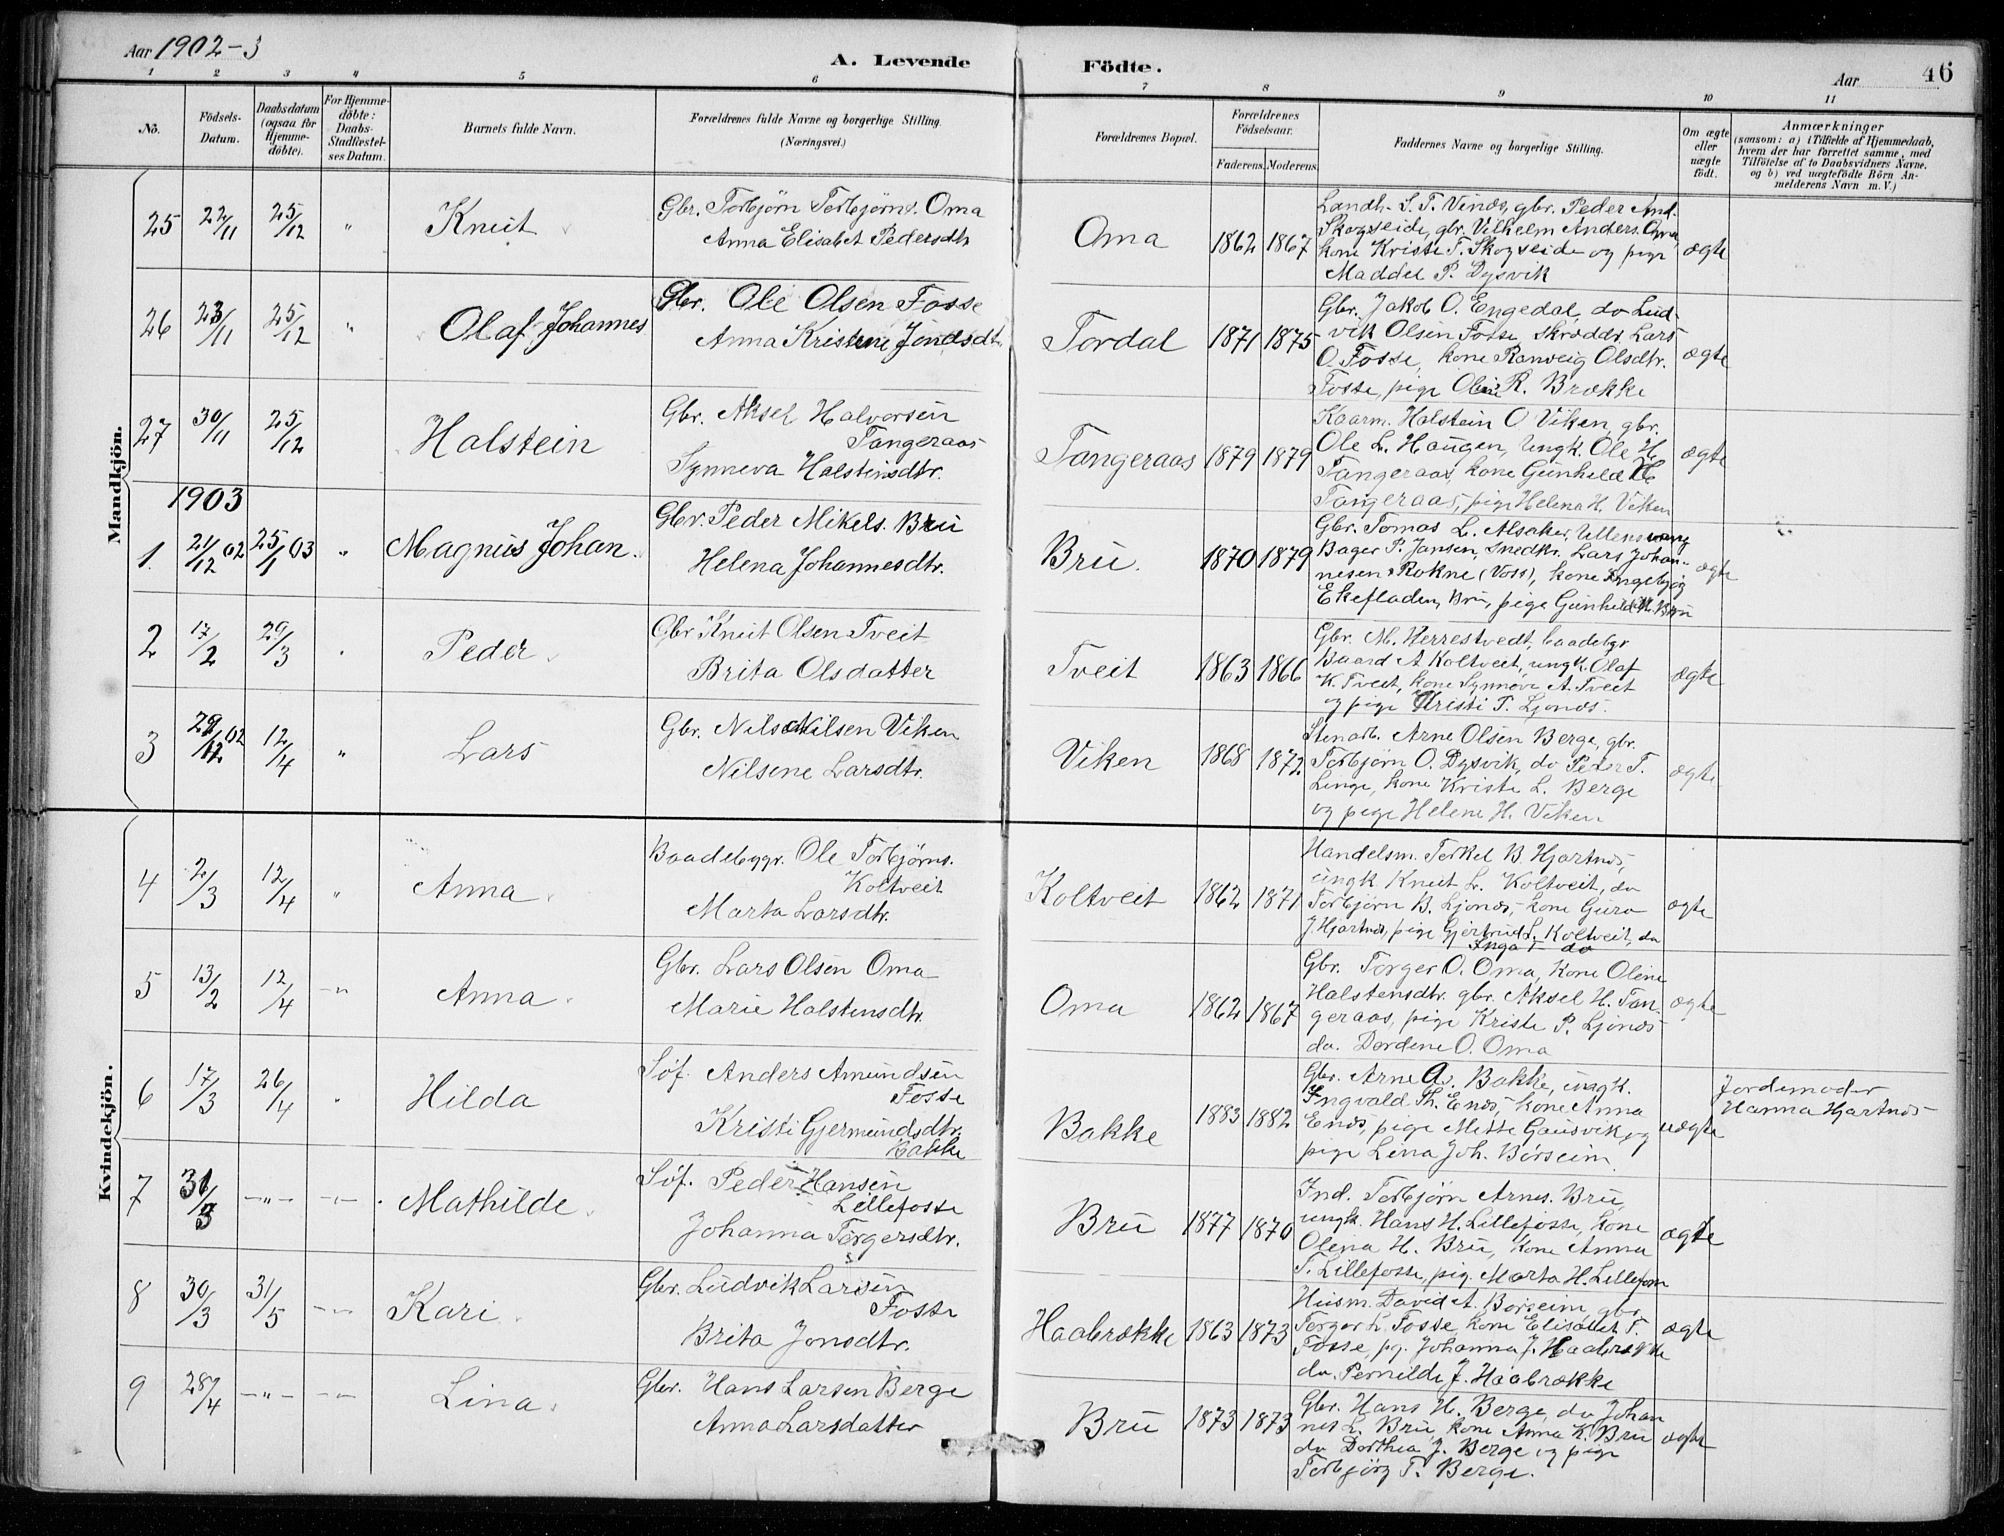 Aar 1902-3
A. Levende Födte.
Aar 46
1 2 3 4 5 6 7 8 9 10 11
No.
Födsels-Datum.
Daabsdatum (ogsaa for Hjemme-döbte).
For Hjemme-döbte: Daabs-Stadfæstel-ses Datum.
Barnets fulde Navn.
Forældrenes fulde Navne og borgerlige Stilling.
(Næringsvei.)
Forældrenes Bopæl.
Forældrenes Födselsaar.
Faderens. Moderens.
Faddernes Navne og borgerlige Stilling.
Om ægte eller uægte födt.
Anmærkninger
(saasom: a) i Tilfælde af Hjemmedaab,
hvem der har forrettet samme, med
Tilföielse af to Daabsvidners Navne,
og b) ved uægtefödte Börn An-
melderens Navn m. V.)
Mandkjön.
25 22/11 25/12 " Knut
Gbr. Torbjørn Torbjørns. Oma
Anna Elisabet Pedersdtr
Oma 1862 1867
Landh. S. T. Vinæs, gbr. Peder And.
Skogseide, gbr. Vilhelm Anders. Oma,
kone Kristi T. Skogseide og pige
Maddel P. Dysvik
ægte
26 23/11 25/12 " Olaf Johannes
Gbr. Ole Olsen Fosse
Anna Kristine Jondsdtr.
Tordal 1871 1875
Gbr. Jakob O. Engedal, do Lud-
vik Olsen Fosse, Skrædd. Lars
O. Fosse, kone Ranveig Olsdtr.
Fosse, pige Oline R. Brække
ægte
27 30/11 25/12 Halstein
Gbr. Aksel Halvorsen
Tangeraas
Synneva Halstensdtr.
Tangeraas 1879 1879
Kaarm. Halstein O Viken, gbr.
Ole L. Haugen, Ungk. Ole H.
Tangeraas, kone Gunhild H
Tangeraas, pige Helena H. Viken
ægte
1903
1. 21/12 02 25/1 03 " Magnus Johan.
Gbr. Peder Mikels. Bru
Helena Johannesdtr.
Bru. 1870 1879
Gbr. Tomas L. Alsaker, Ullensvang
Bager P. Jansen, Snedkr. Lars Johan-
nesen Rokne (Voss), kone Ingebjørg
Ekefladen, Bru, pige Gunhild M. Bru
ægte
2 17/2 29/3 Peder
Gbr Knut Olsen Tveit
Brita Olsdatter
Tveit 1863 1866
Gbr. M. Herrestvedt, baadebgr
Baard A Koltveit, ungk. Olaf
K. Tveit, kone Synnøve A. Tveit
og pige Kristi T. Ljones.
ægte
3 29/12 02 12/4 " Lars
Gbr. Nils Nilsen Viken
Nilsene Larsdtr.
Viken 1868 1872
Stenarb. Arne Olsen Berge, gbr.
Torbjørn O. Dysvik, do Peder T.
Linge, kone Kristi L. Berge
og pige Helene H. Viken
ægte
Kvindekjön.
4 2/3 12/4 " Anna
Baadebyggr. Ole Torbjørns.
Koltveit
Marta Larsdtr.
Koltveit 1862 1871
Handelsm. Torkel B. Hjartnæs,
ungk. Knut L. Koltveit, do
Torbjørn B. Ljonæs, kone Guro
J. Hjartnæs, pige Gjertrud L. Koltveit, do
Inga T do
ægte
5 13/2 12/4 -"- Anna
Gbr. Lars Olsen Oma
Marie Halstensdtr.
Oma 1862 1867
Gbr. Torger O. Oma, kone Oline
Halstensdtr. gbr. Aksel H. Tan-
geraas, pige Kristi P. Ljones
do. Dordene O. Oma
ægte
6 17/3 26/4 " Hilda
Søf. Anders Amundsen
Fosse
Kristi Gjermundsdtr.
Bakke
Bakke 1883 1882
Gbr. Arne A. Bakke, ungk.
Ingvald Th. Enæs, kone Anna
Enæs, pige Mette Gausvik og
pige Lena Joh. Børseim
uægte
Jordemoder
Hanna Hjartnæs
7 31/3 -"- -"- Mathilde
Søf. Peder Hansen
Lillefosse
Johanna Torgersdtr.
Bru 1877 1870
Ind. Torbjørn Arnes. Bru,
ungk. Hans H. Lillefosse, kone
Olena H. Bru, kone Anna
T. Lillefosse, pig. Marta H. Lillefosse
ægte
8 30/3 31/5 -"- Kari
Gbr. Ludvik Larsen
Fosse
Brita Jonsdtr.
Haabrække 1863 1873
Husm. David A. Børseim, gbr.
Torger L Fosse, kone Elisabet T.
Fosse, pg. Johanna J. Haabrække
do. Pernilde J. Haabrække
ægte
9 28/4 -"- -"- Lina
Gbr. Hans Larsen Berge
Anna Larsdatter
Bru 1873 1873
Gbr. Hans H. Berge, do Johan
nes L. Bru, kone Anna K. Bru
do Dorthea J. Berge og pige
Torbjørg T. Berge.
ægte